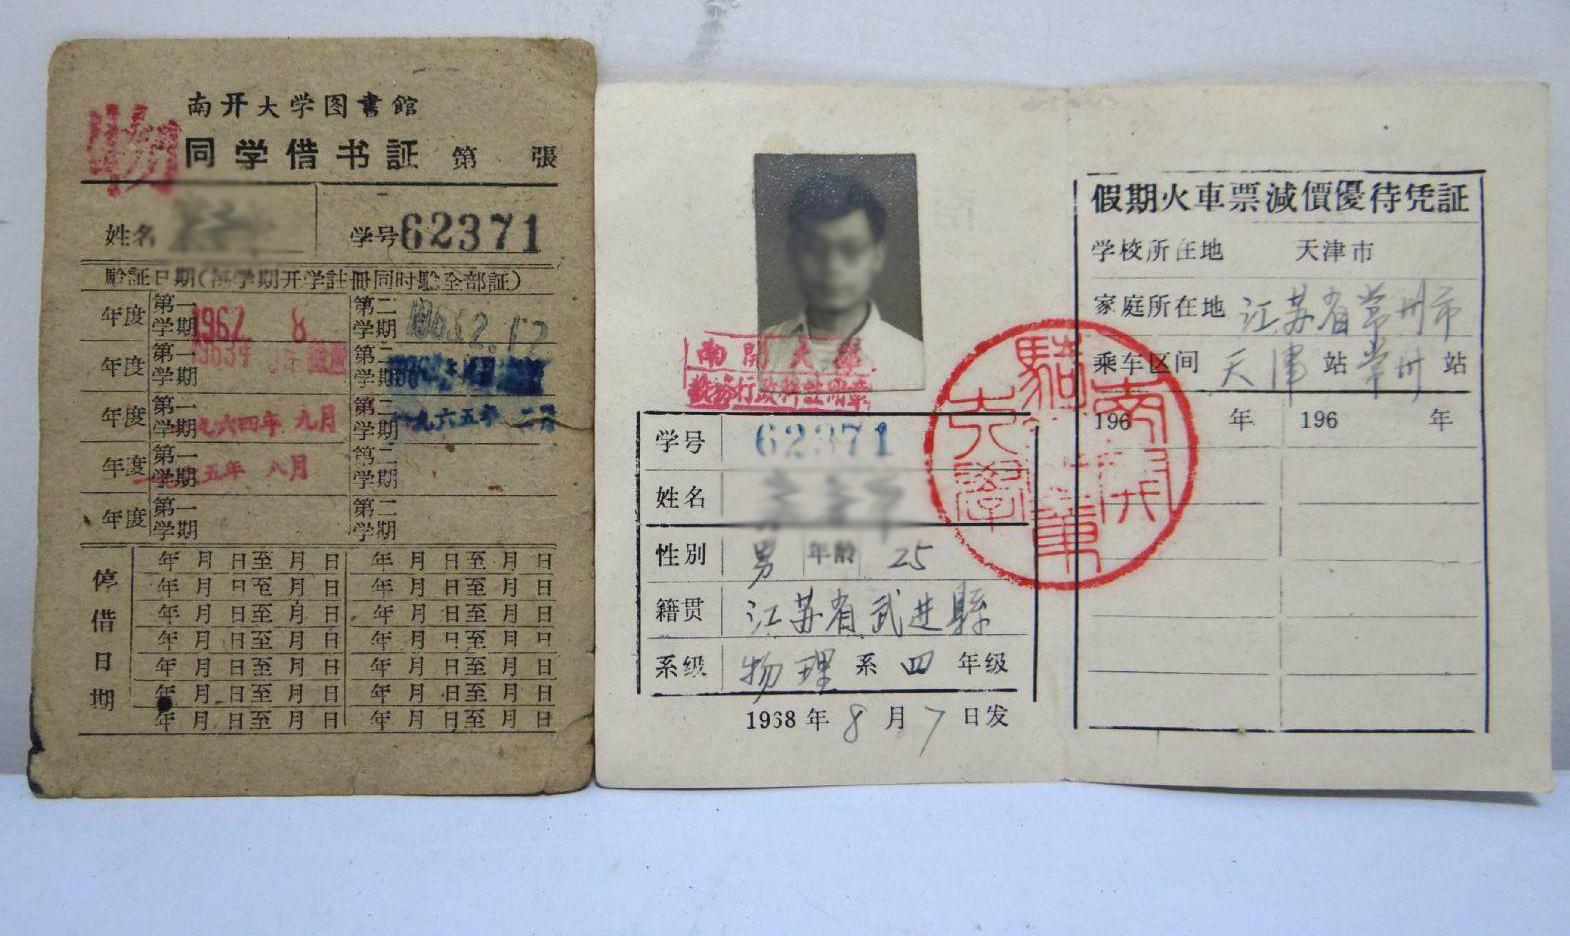 南开大学图書館
同学借书証 第 張
物
姓名
学号62371
驗証日期(每学期开学註冊同时驗全部証)
年度 第一学期 1962 8 第二学期
年度 第一学期 第二学期
年度 第一学期 一九六四年 九月 第二学期 一九六五年 二月
年度 第一学期 一九六五年 八月 第二学期
年度 第一学期 第二学期
停借日期
年 月 日至 月 日 年 月 日至 月 日
年 月 日至 月 日 年 月 日至 月 日
年 月 日至 月 日 年 月 日至 月 日
年 月 日至 月 日 年 月 日至 月 日
年 月 日至 月 日 年 月 日至 月 日
年 月 日至 月 日 年 月 日至 月 日
年 月 日至 月 日 年 月 日至 月 日
南開大學
教務行政科註冊章
学号 62371
姓名
性别 男 年龄 25
籍贯 江苏省武进縣
系级 物理 系 四 年级
1968年8月7日发
南開大學騎章
假期火車票減價優待凭証
学校所在地 天津市
家庭所在地 江苏省常州市
乘车区间 天津 站 常州 站
196 年 196 年